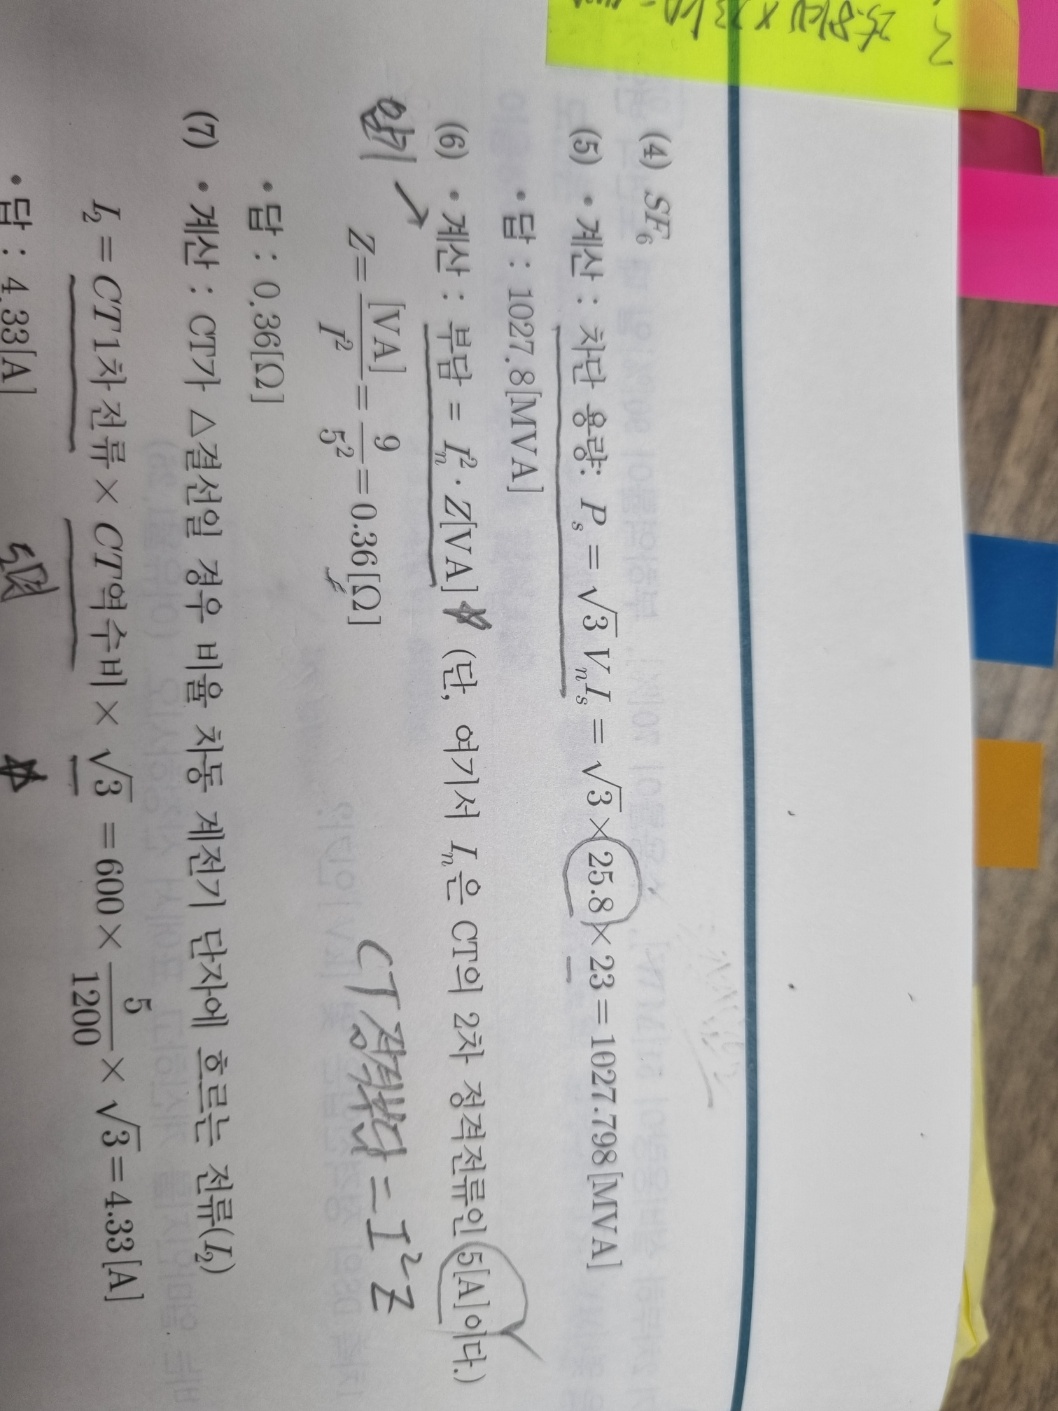 (4) SF₆
(5) • 계산 : 차단 용량: Pₛ = √3 VₙIₛ = √3 × 25.8 × 23 = 1027.798[MVA]
• 답 : 1027.8[MVA]
(6) • 계산 : 부담 = Iₙ² · Z[VA] ☆ (단, 여기서 Iₙ은 CT의 2차 정격전류인 5[A]이다.)
암기 →
Z = [VA]/I² = 9/5² = 0.36[Ω]
CT 정격부담 = I²Z
• 답 : 0.36[Ω]
(7) • 계산 : CT가 △결선일 경우 비율 차동 계전기 단자에 흐르는 전류(I₂)
I₂ = CT 1차 전류 × CT 역수비 × √3 = 600 × 5/1200 × √3 = 4.33[A]
• 답 : 4.33[A]